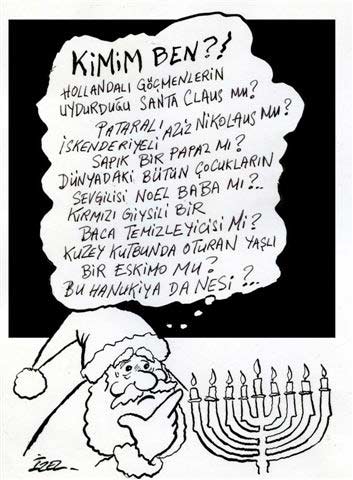 KİMİM BEN?!
HOLLANDALI GÖÇMENLERİN
UYDURDUĞU SANTA CLAUS MU?
PATARALI AZİZ NİKOLAUS MU?
İSKENDERİYELİ
SAPIK BİR PAPAZ MI?
DÜNYADAKİ BÜTÜN ÇOCUKLARIN
SEVGİLİSİ NOEL BABA MI?..
KIRMIZI GİYSİLİ BİR
BACA TEMİZLEYİCİSİ Mİ?
KUZEY KUTBUNDA OTURAN YAŞLI
BİR ESKİMO MU?
BU HANUKİYA DA NESİ?...
İZEL